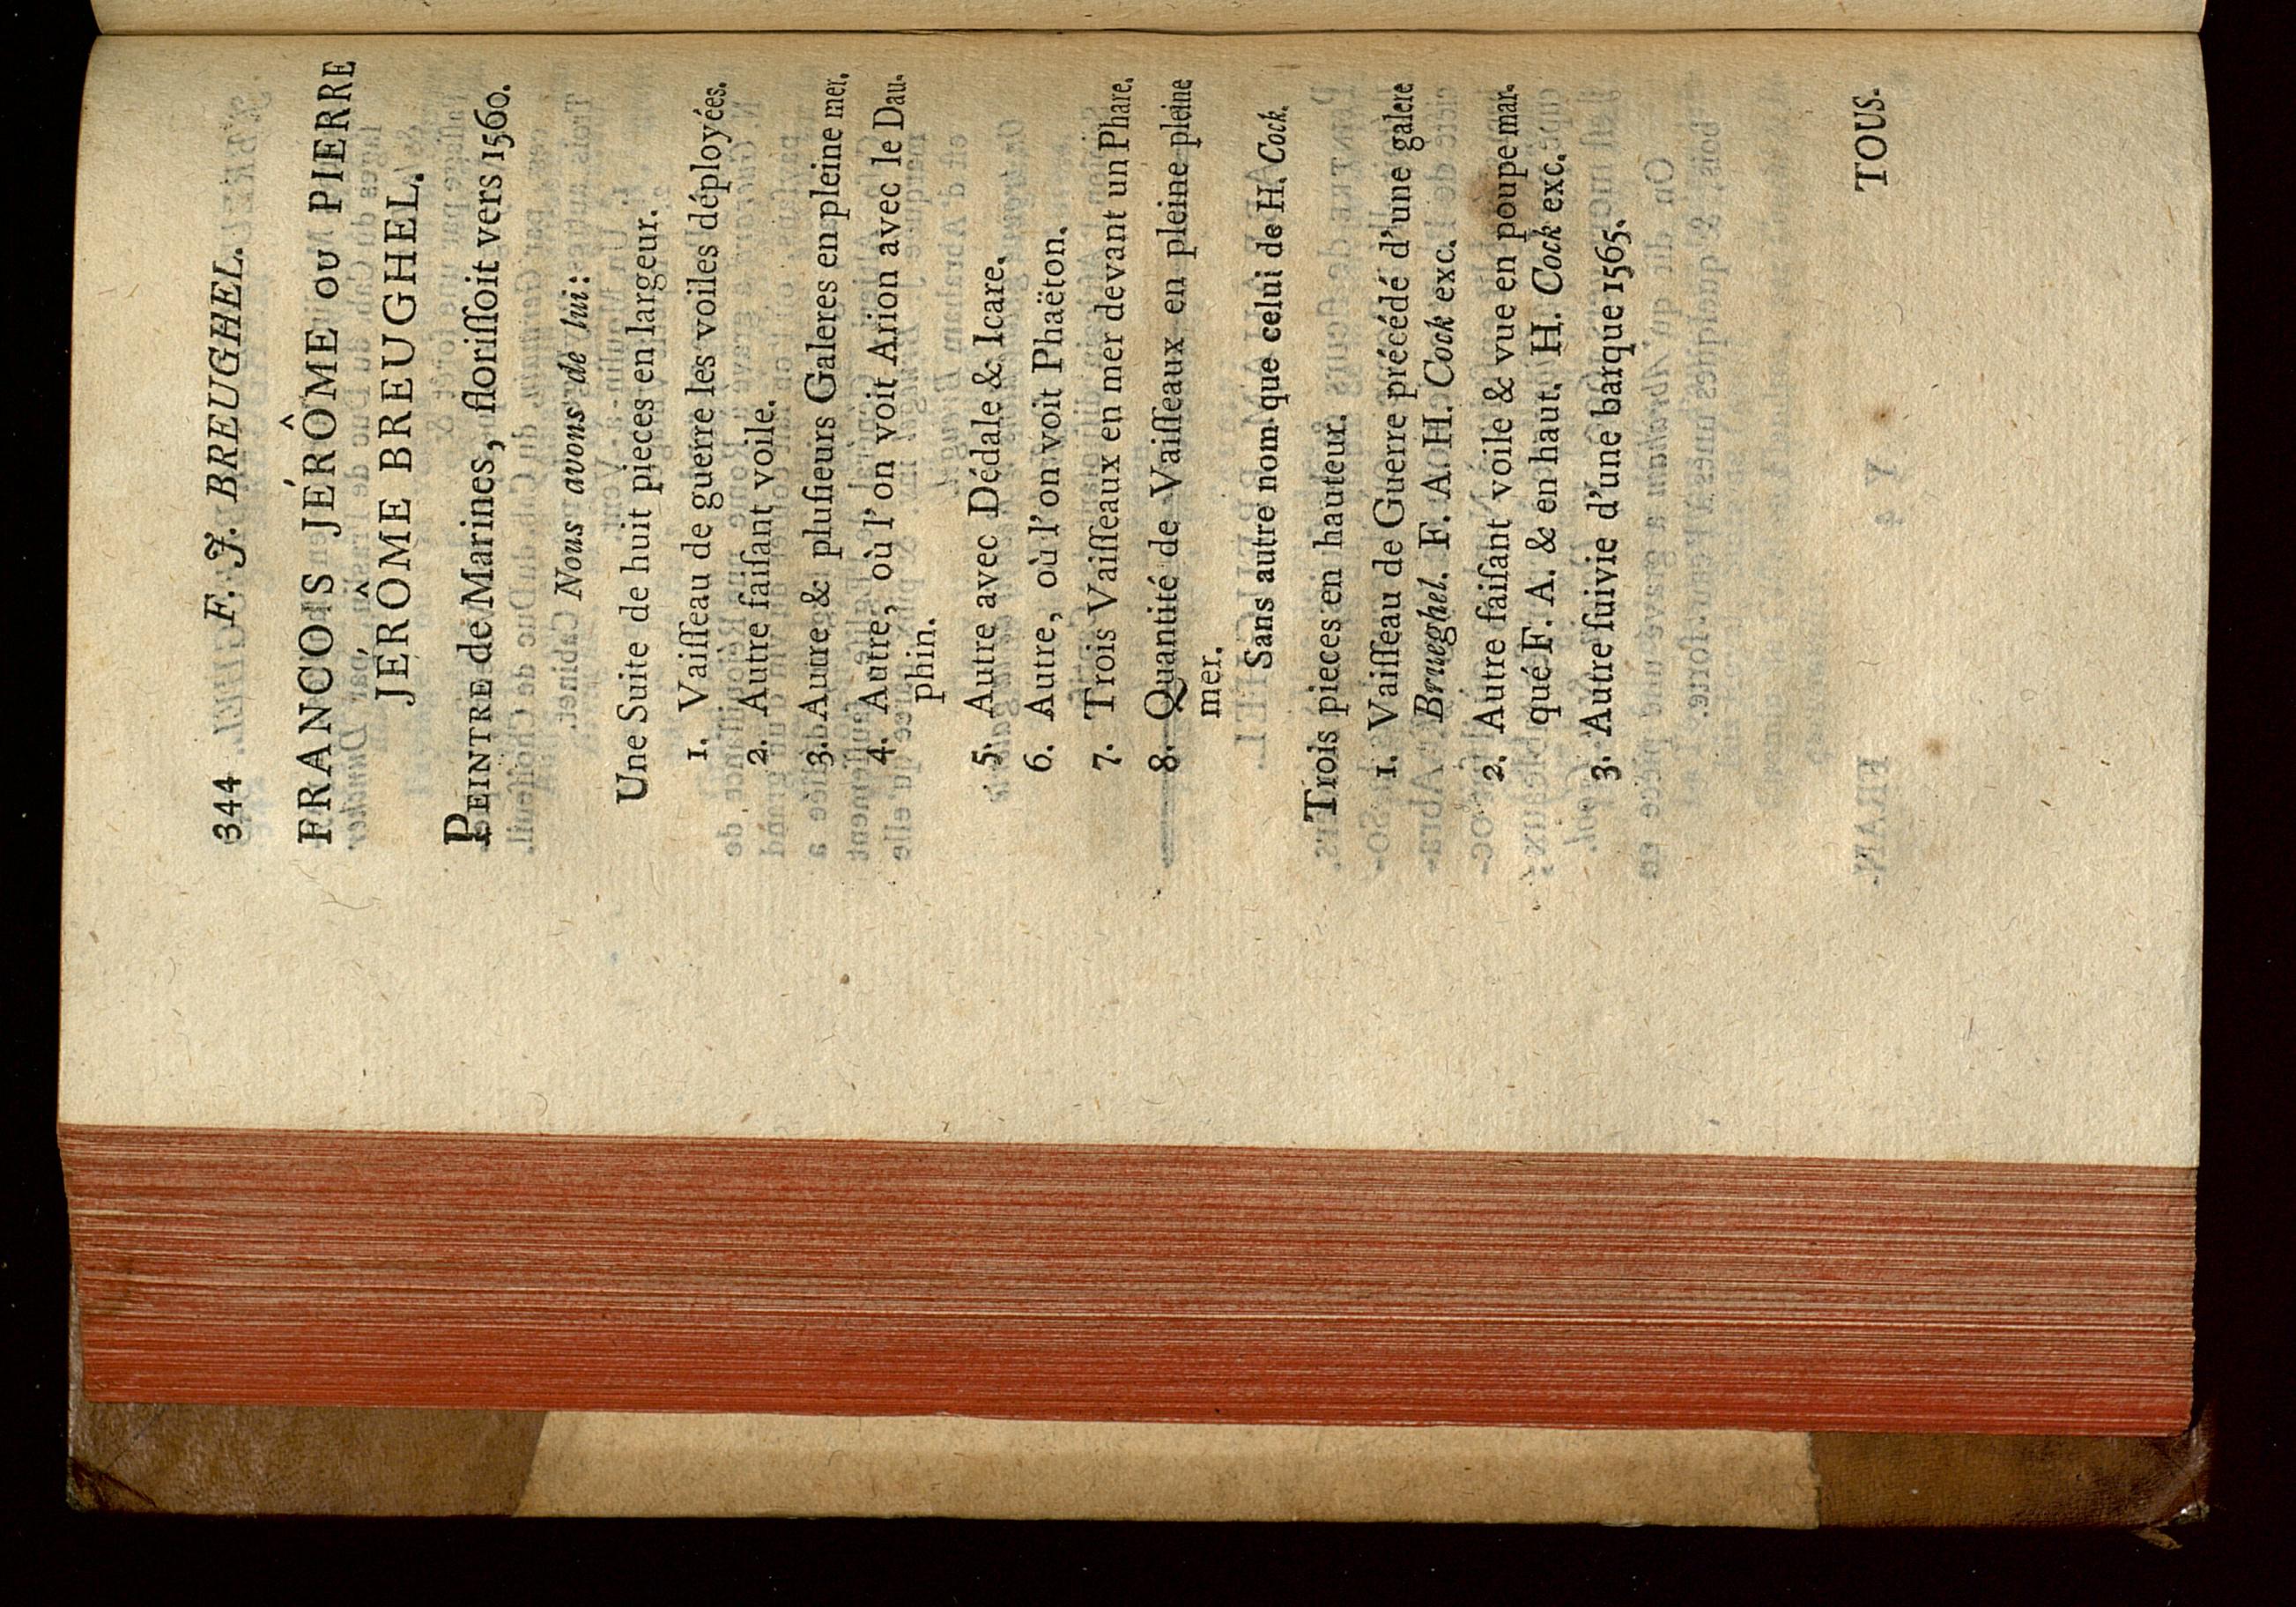 344 F. J. BREUGHEL.
FRANCOIS JÉRÔME ou PIERRE
JÉRÔME BREUGHEL.
PEINTRE de Marines, floriſſoit vers 1560.
Nous avons de lui:
Une Suite de huit pieces en largeur.
1. Vaiſſeau de guerre les voiles déployées.
2. Autre faiſant voile.
3. Autre & pluſieurs Galeres en pleine mer.
4. Autre, où l'on voit Arion avec le Dau-
phin.
5. Autre avec Dédale & Icare.
6. Autre, où l'on voit Phaëton.
7. Trois Vaiſſeaux en mer devant un Phare.
8. Quantité de Vaiſſeaux en pleine pleine
mer.
Sans autre nom que celui de H. Cock.
Trois pieces en hauteur.
1. Vaiſſeau de Guerre précédé d'une galere
Brueghel. F. A. H. Cock exc.
2. Autre faiſant voile & vue en poupe mar-
qué F. A. & en haut. H. Cock exc.
3. Autre ſuivie d'une barque 1565.
TOUS.